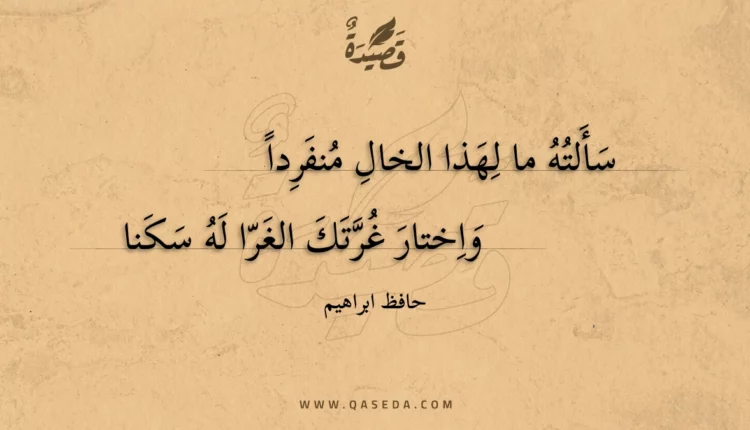 قَصِيدَةٌ
سَأَلتُهُ ما لِهَذا الخالِ مُنفَرِداً
وَاِختارَ غُرَّتَكَ الغَرّا لَهُ سَكَنا
حافظ ابراهيم
WWW.QASEDA.COM